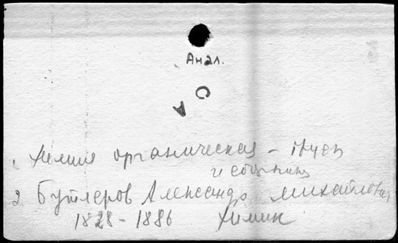 Анал.
С
А
1 Химия органическая -
и сборники
2 Бутлеров Александр Михайлович
1828 - 1886 Химик